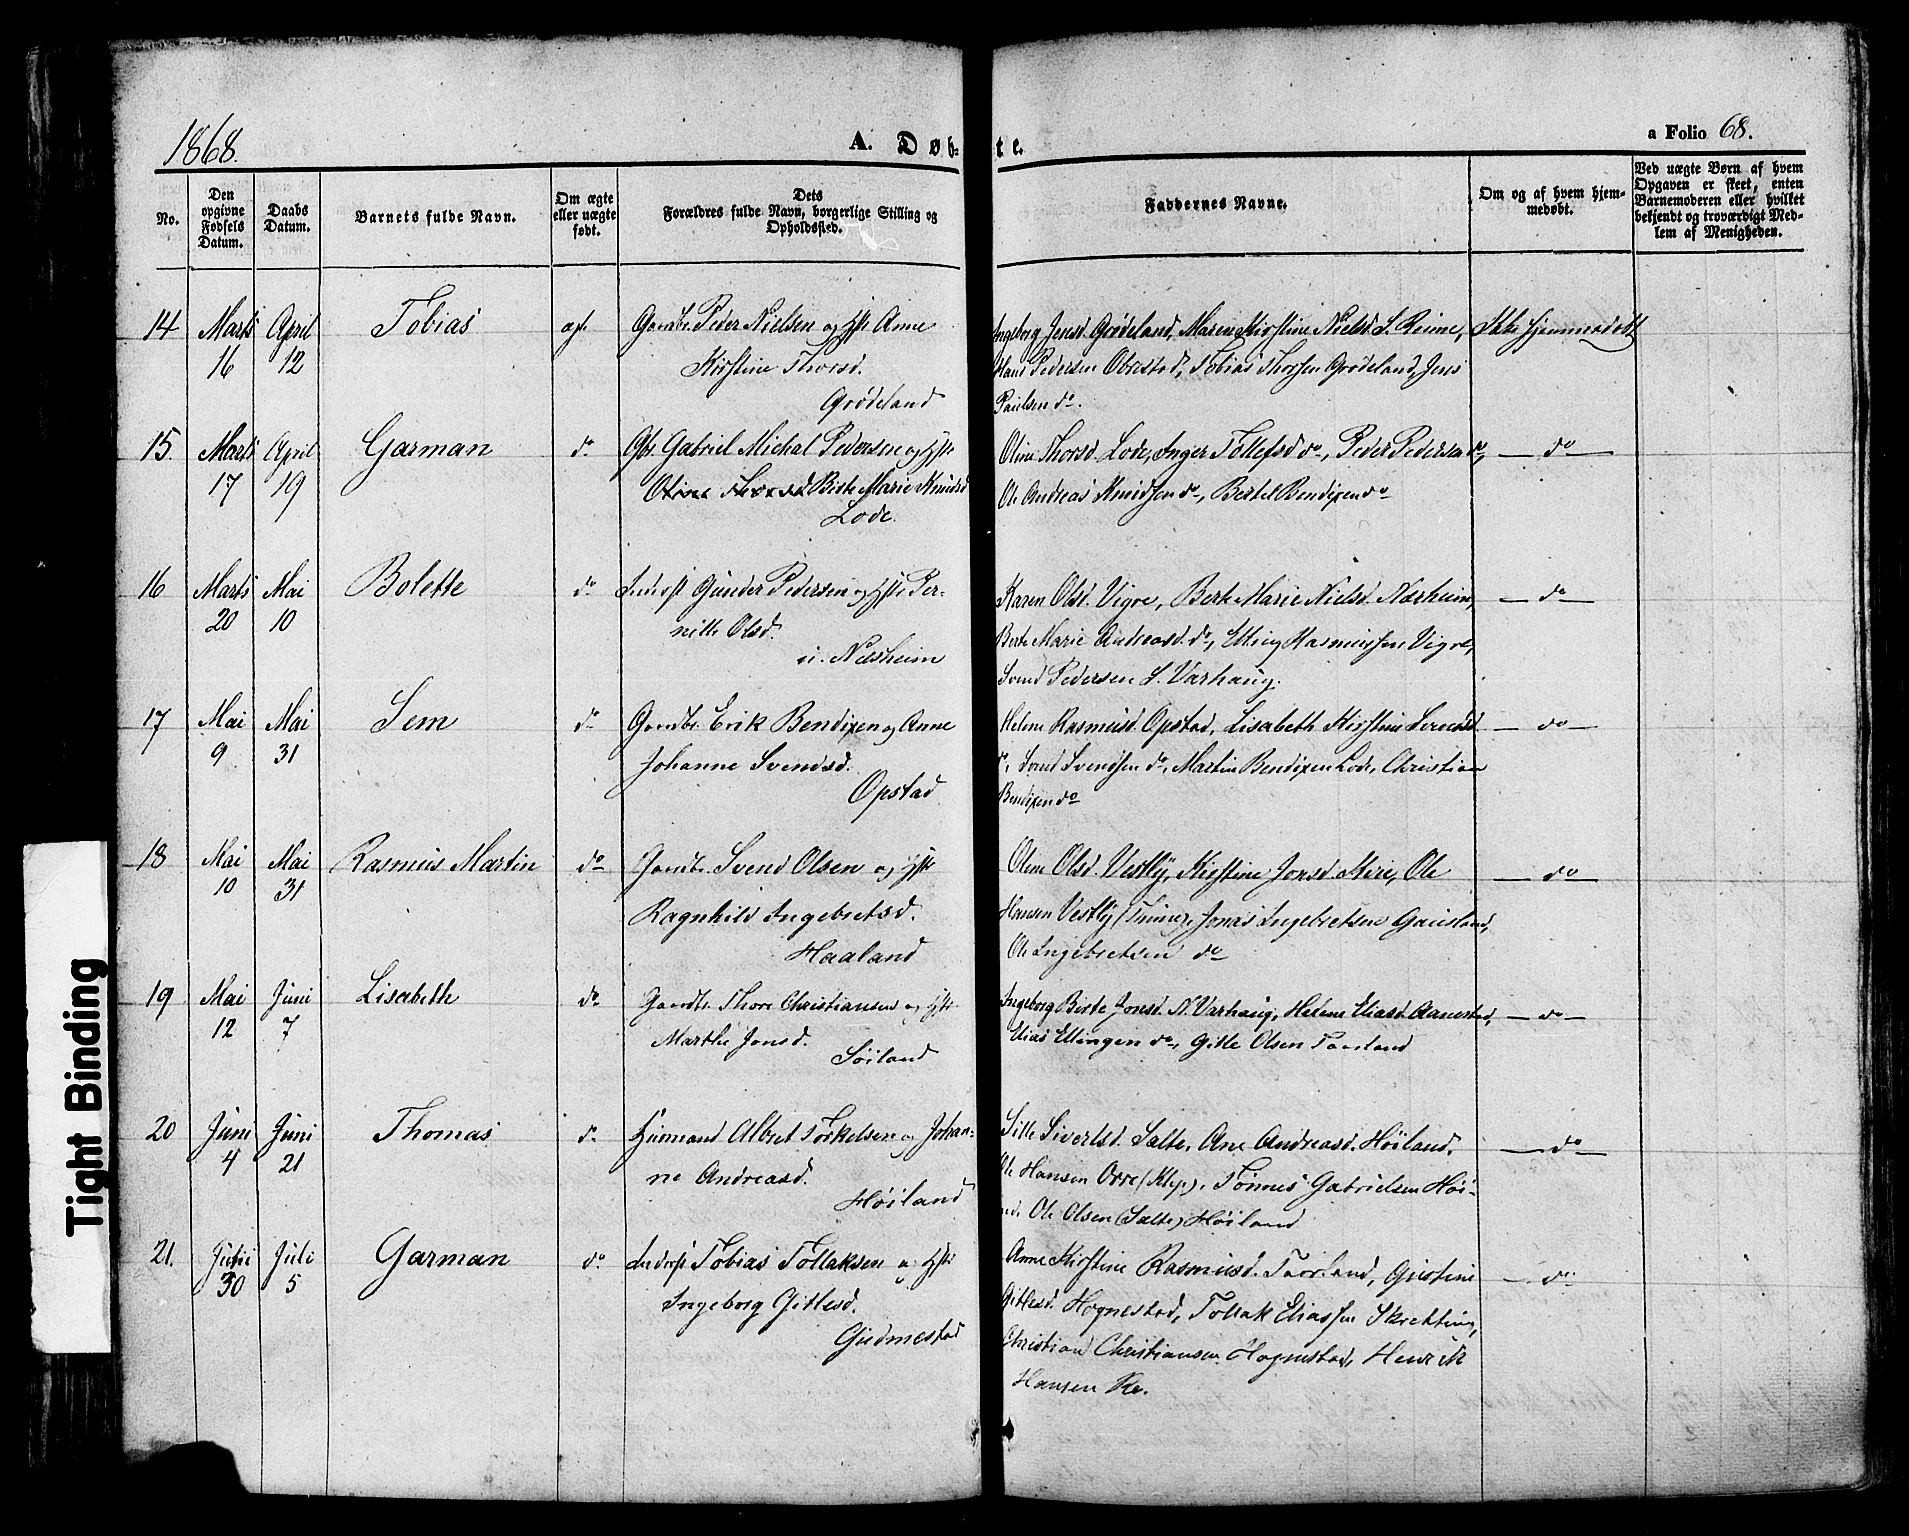 1868.
A. Døb-
te.
a Folio 68.
No.
Den opgivne Fødsels Datum.
Daabs Datum.
Barnets fulde Navn.
Om ægte eller uægte født.
Dets
Forældres fulde Navn, borgerlige Stilling og
Opholdssted.
Faddernes Navne.
Om og af hvem hjem-
medøbt.
Ved uægte Børn af hvem
Opgaven er skeet, enten
Barnemoderen eller hvilket
bekjendt og troværdigt Med-
lem af Menigheden.
14 Marts 16 April 12 Tobias
Gaardbr. Peder Nielsen og Hst. Anne
Kirstine Thorsd.
Grødeland
Ingeborg Jensd. Grødeland, Maren Kirstine Nielsd. S. Reime,
Hans Pedersen Obrestad, Tobias Thorsen Grødeland, Jens
Paulsen do.
Ikke hjemmedøbt
15. Marts 17 April 19 Garman do
Gbr. Gabriel Michal Pedersen og Hst.
Oline Thorsd Berte Marie Knudsd
Lode.
Oline Thorsd. Lode, Inger Tollefsd do, Peder Pedersen do,
Ole Andreas Knudsen do, Bertel Bendixen do
do
16 Marts 20 Mai 10 Bolette do
Gunder Pedersen og Hst. Per-
nille Olsd.
Karen Olsd. Vigre, Berte Marie Nielsd. Nærheim,
Berte Marie Andreasd. do, Elling Rasmussen Vigre,
Svend Pedersen S. Varhaug.
do
17 Mai 9 Mai 31 Sem do
Gaardbr. Erik Bendixen og Anne
Johanne Svendsd.
Opstad
Helene Rasmusd. Opstad, Lisabeth Kirstine Svendsd.
do, Svend Svendsen do, Martin Bendixen Lode, Christian
Bendixen do
do
18 Mai 10 Mai 31 Rasmus Martin do
Gaardbr. Svend Olsen og Hst.
Ragnhild Ingebretsd.
Haaland
Olene Olsd. Vestly, Kirstine Jonsd. , Ole
Hansen Vestly (Time), Jonas Ingebretsen Gausland,
Ole Ingebretsen do
do
19 Mai 12 Juni 7 Lisabeth do
Gaardbr. Thore Christiansen og Hst.
Marthe Jonsd.
Søiland
Ingeborg Birte Jonsd. N. Varhaug, Helene Eliasd. Aanestad,
Elias Ellingsen do, Gitle Olsen Taarland
do
20 Juni 4 Juni 21 Thomas do
Huusmand Albret Torkelsen og Johan-
ne Andreasd.
Høiland
Sille Sivertsd. Salte, Ane Andreasd. Høiland,
Ole Hansen Orre (Klep), Tønnes Gabrielsen Høi-
land, Ole Olsen (Salte) Høiland
do
21. Juni 30 Juli 5 Garman do
Inderst Tobias Tollaksen og Hst.
Ingeborg Gitlesd.
Gudmestad
Anne Kirstine Rasmusd. Taarland, Gustine
Gitlesd. Hognestad, Tollak Eliassen Skretting,
Christian Christiansen Hognestad, Henrik
Hansen
do
Tight Binding